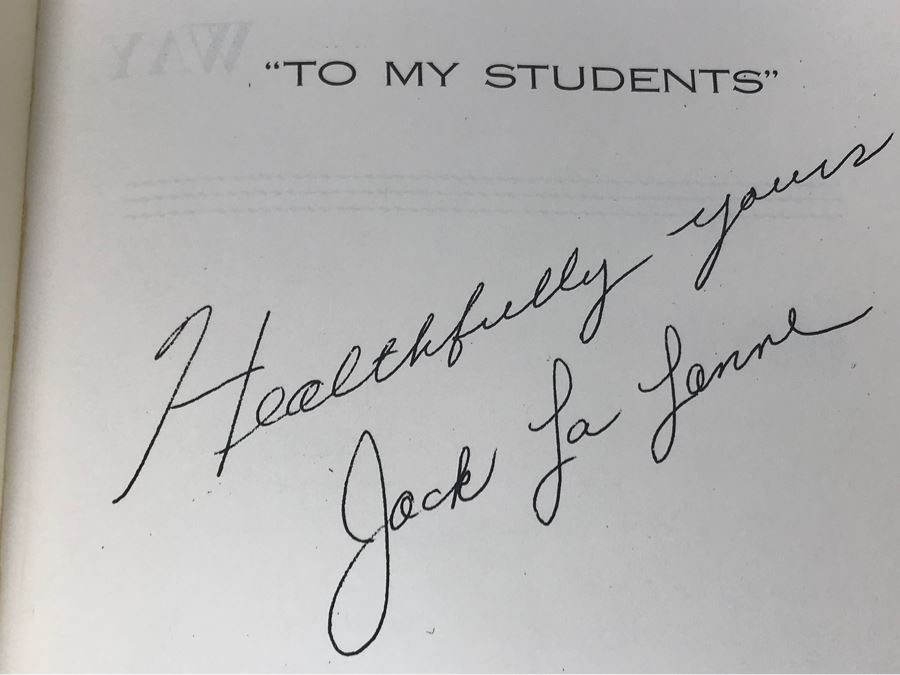 “TO MY STUDENTS”
Healthfully yours
Jack La Lanne